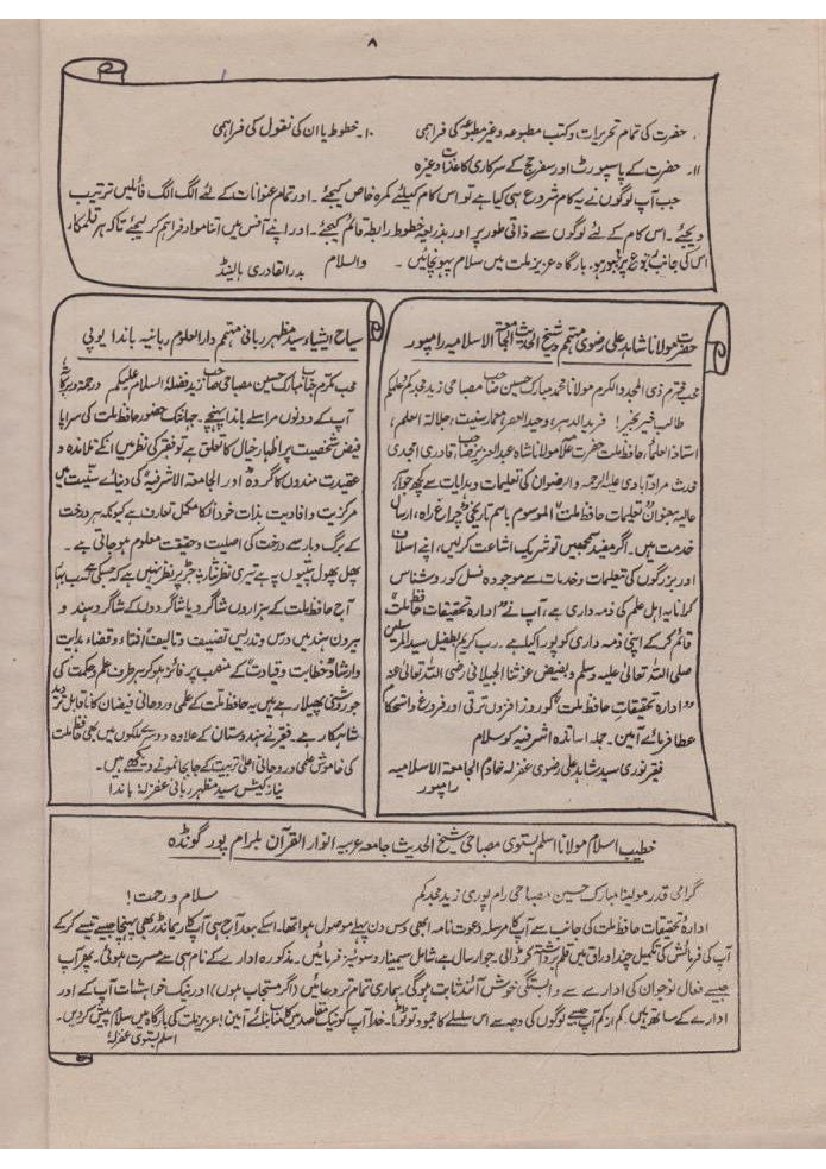 ۸
۔ حضرت کی تمام تحریرات و کتب مطبوعہ و غیر مطبوعہ کی فراہمی ۱۰۔ خطوط یا ان کی نقول کی فراہمی
۱۱۔ حضرت کے پاسپورٹ اور سفر حج کے سرکاری کاغذات وغیرہ
جب آپ لوگوں نے یہ کام شروع ہی کیا ہے تو اس کام کیلئے کمرہ خاص کیجئے ۔ اور تمام عنوانات کے لئے الگ الگ فائلیں ترتیب
دیجئے ۔ اس کام کے لئے لوگوں سے ذاتی طور پر اور بذریعہ خطوط رابطہ قائم کیجئے ۔ اور اپنے آفس میں اتنا مواد فراہم کر لیجئے تاکہ ہر قلمکار
اس کی جانب رجوع پر مجبور ہو۔ بارگاہ عزیز ملت میں سلام پہونچائیں ۔ والسلام بدر القادری ہالینڈ
حضرت مولانا شاہد علی رضوی مہتمم و شیخ الحدیث الجامعۃ الاسلامیہ رامپور
محب محترم ذی المجد والکرم مولانا محمد مبارک حسین صاحب مصباحی زید مجدکم و علمکم
طالب خیر بخیر! فرید الدہر، وحید العصر، معمار سنیت، جلالۃ العلم،
استاذ العلماء، حافظ ملت حضرت علامہ مولانا شاہ عبد العزیز صاحب قادری امجدی
محدث مرادآبادی علیہ الرحمہ والرضوان کی تعلیمات و ہدایات سے کچھ جواہر
عالیہ بعنوان تعلیمات حافظ ملت الموسوم باسم تاریخی چراغ راہ، ارسال
خدمت ہیں۔ اگر مفید سمجھیں تو شریک اشاعت کر لیں، اپنے اسلاف
اور بزرگوں کی تعلیمات و خدمات سے موجودہ نسل کو روشناس
کرانا یہ اہل علم کی ذمہ داری ہے، آپ نے ”ادارہ تحقیقات حافظ ملت“
قائم کر کے اپنی ذمہ داری کو پورا کیا ہے ۔ رب کریم بطفیل سید المرسلین
صلی اللہ تعالیٰ علیہ وسلم و بفیض غوثنا الجیلانی رضی اللہ تعالیٰ عنہ
”ادارہ تحقیقات حافظ ملت“ کو روز افزوں ترقی اور فروغ و استحکام
عطا فرمائے آمین ۔ جملہ اساتذہ اشرفیہ کو سلام
فقیر نوری سید شاہد علی رضوی غفرلہ خادم الجامعۃ الاسلامیہ
رامپور
سیاح ایشیاء سید مظہر ربانی مہتمم دارالعلوم ربانیہ باندا یوپی
محب مکرم جناب مبارک حسین مصباحی صاحب زید فضلہٗ السلام علیکم ورحمۃ وبرکاتہ
آپ کے دونوں مراسلے باندا پہنچے۔ جہانتک حضور حافظ ملت کی سراپا
فیض شخصیت پر اظہار خیال کا تعلق ہے تو فقیر کی نظر میں انکے تلامذہ و
عقیدت مندوں کا گروہ اور الجامعۃ الاشرفیہ کی دنیائے سنیت میں
مرکزیت و افادیت بذات خود انکا مکمل تعارف ہے کیونکہ ہر درخت
کے برگ و بار سے درخت کی اصلیت و حقیقت معلوم ہو جاتی ہے ۔
پھل پھول پتیوں پہ ہے تیری نظر نثار یہ جڑ پر نظر نہیں ہے کہ جسکی ہے سب بہار
آج حافظ ملت کے ہزاروں شاگرد یا شاگردوں کے شاگرد ہند و
بیرون ہند میں درس و تدریس تصنیف و تالیف، افتاء و قضاء ہدایت
و ارشاد، خطابت و قیادت کے منصب پر فائز ہو کر ہر طرف علم و حکمت کی
جو روشنی پھیلا رہے ہیں یہ حافظ ملت کے علمی و روحانی فیضان کا ناقابل تردید
شاہکار ہے ۔ فقیر نے ہندوستان کے علاوہ دوسرے ملکوں میں بھی حافظ ملت
کی خاموش علمی و روحانی اعلیٰ تربیت کے جابجا نمونے دیکھے ہیں ۔
نیاز کیش سید مظہر ربانی غفرلہٗ باندا
خطیب اسلام مولانا اسلم بستوی مصباحی شیخ الحدیث جامعہ عربیہ انوار القرآن بلرام پور گونڈہ
گرامی قدر مولینا مبارک حسین مصباحی رام پوری زید مجدکم سلام و رحمت!
ادارۂ تحقیقات حافظ ملت کی جانب سے آپ کا مرسلہ دعوت نامہ ابھی دس دن پہلے موصول ہوا تھا۔ اسکے بعد آج ہی آپ کا ریمائنڈر بھی پہنچا جیسے تیسے کر کے
آپ کی فرمائش کی تکمیل چند اوراق میں قلم برداشتہ کر ڈالی۔ جو ارسال ہے شامل سیمینار و سونیز فرمائیں ۔ مذکورہ ادارے کے نام ہی سے مسرت ہوئی ۔ پھر آپ
جیسے فعال نوجوان کی ادارے سے وابستگی خوش آئند ثابت ہوگی ہماری تمام تر دعائیں (اگر مستجاب ہوں) اور نیک خواہشات آپ کے اور
ادارے کے ساتھ ہیں کم از کم آپ جیسے لوگوں کی وجہ سے اس سلسلے کا جمود تو ٹوٹا۔ خدا آپ کو نیک مقاصد میں کامیاب بنائے آمین! عزیز ملت کی بارگاہ میں سلام پیش کردیں۔
اسلم بستوی غفرلہٗ